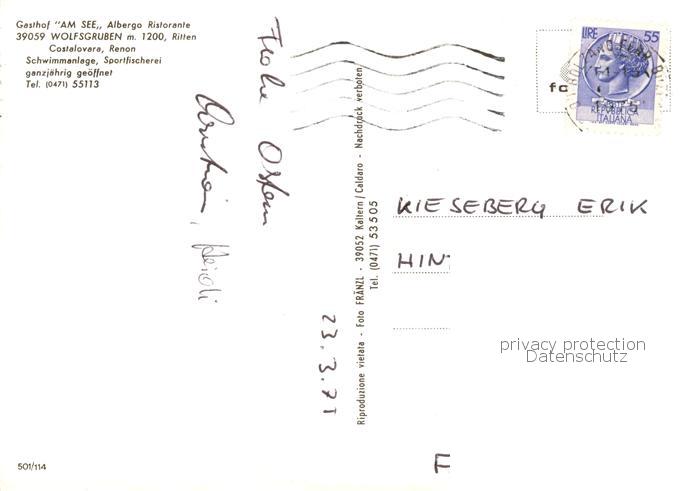 Gasthof "AM SEE„ Albergo Ristorante
39059 WOLFSGRUBEN m. 1200, Ritten
Costalovara, Renon
Schwimmanlage, Sportfischerei
ganzjährig geöffnet
Tel. (0471) 55113
Frohe Ostern
Christian, Heidi
23.3.71
Riproduzione vietata - Foto FRÄNZL - 39052 Kaltern/Caldaro - Nachdruck verboten
Tel. (0471) 53505
LIRE 55
REPVBBLICA
ITALIANA
KIESEBERG ERIK
HIN
privacy protection
Datenschutz
F
501/114